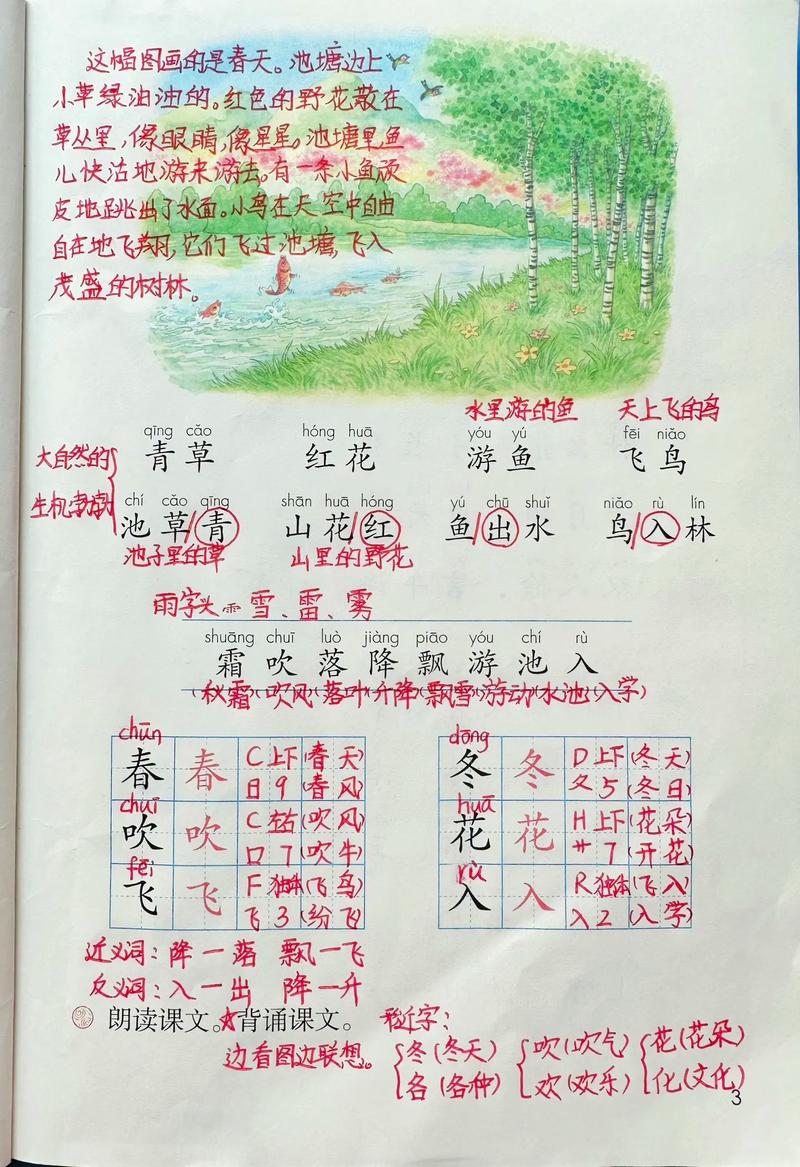 这幅图画的是春天。池塘边上
小草绿油油的。红色的野花散在
草丛里,像眼睛,像星星。池塘里,鱼
儿快活地游来游去。有一条小鱼顽
皮地跳出了水面。小鸟在天空中自由
自在地飞翔,它们飞过池塘,飞入
茂盛的树林。
水里游的鱼 天上飞的鸟
qīng cǎo hóng huā yóu yú fēi niǎo
大自然的 青草 红花 游鱼 飞鸟
生机勃勃
chí cǎo qīng shān huā hóng yú chū shuǐ niǎo rù lín
池草/青 山花/红 鱼/出水 鸟/入林
池子里的草 山里的野花
雨字头 雪、雷、雾
shuāng chuī luò jiàng piāo yóu chí rù
霜 吹 落 降 飘 游 池 入
(秋霜)(吹风)(落叶)(升降)(飘雪)(游动)(水池)(入学)
chūn dōng
春 春 C 上下 (春天) 冬 冬 D 上下 (冬天)
日 9 (春风) 夂 5 (冬日)
chuī huā
吹 吹 C 左右 (吹风) 花 花 H 上下 (花朵)
口 7 (吹牛) 艹 7 (开花)
fēi rù
飞 飞 F 独体 (飞鸟) 入 入 R 独体 (飞入)
飞 3 (纷飞) 入 2 (入学)
近义词:降—落 飘—飞
反义词:入—出 降—升
朗读课文。背诵课文。
边看图边联想。
形近字:
冬(冬天) 吹(吹气) 花(花朵)
各(各种) 欢(欢乐) 化(文化)
3